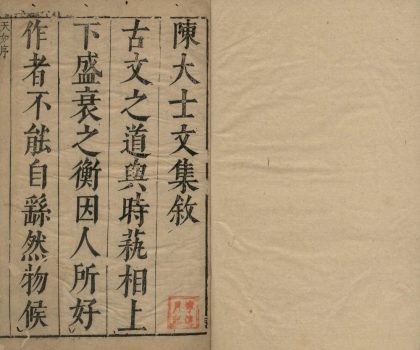 陳大士文集敘
古文之道與時蓺相上
下盛衰之衡因人所好
作者不能自繇然物候